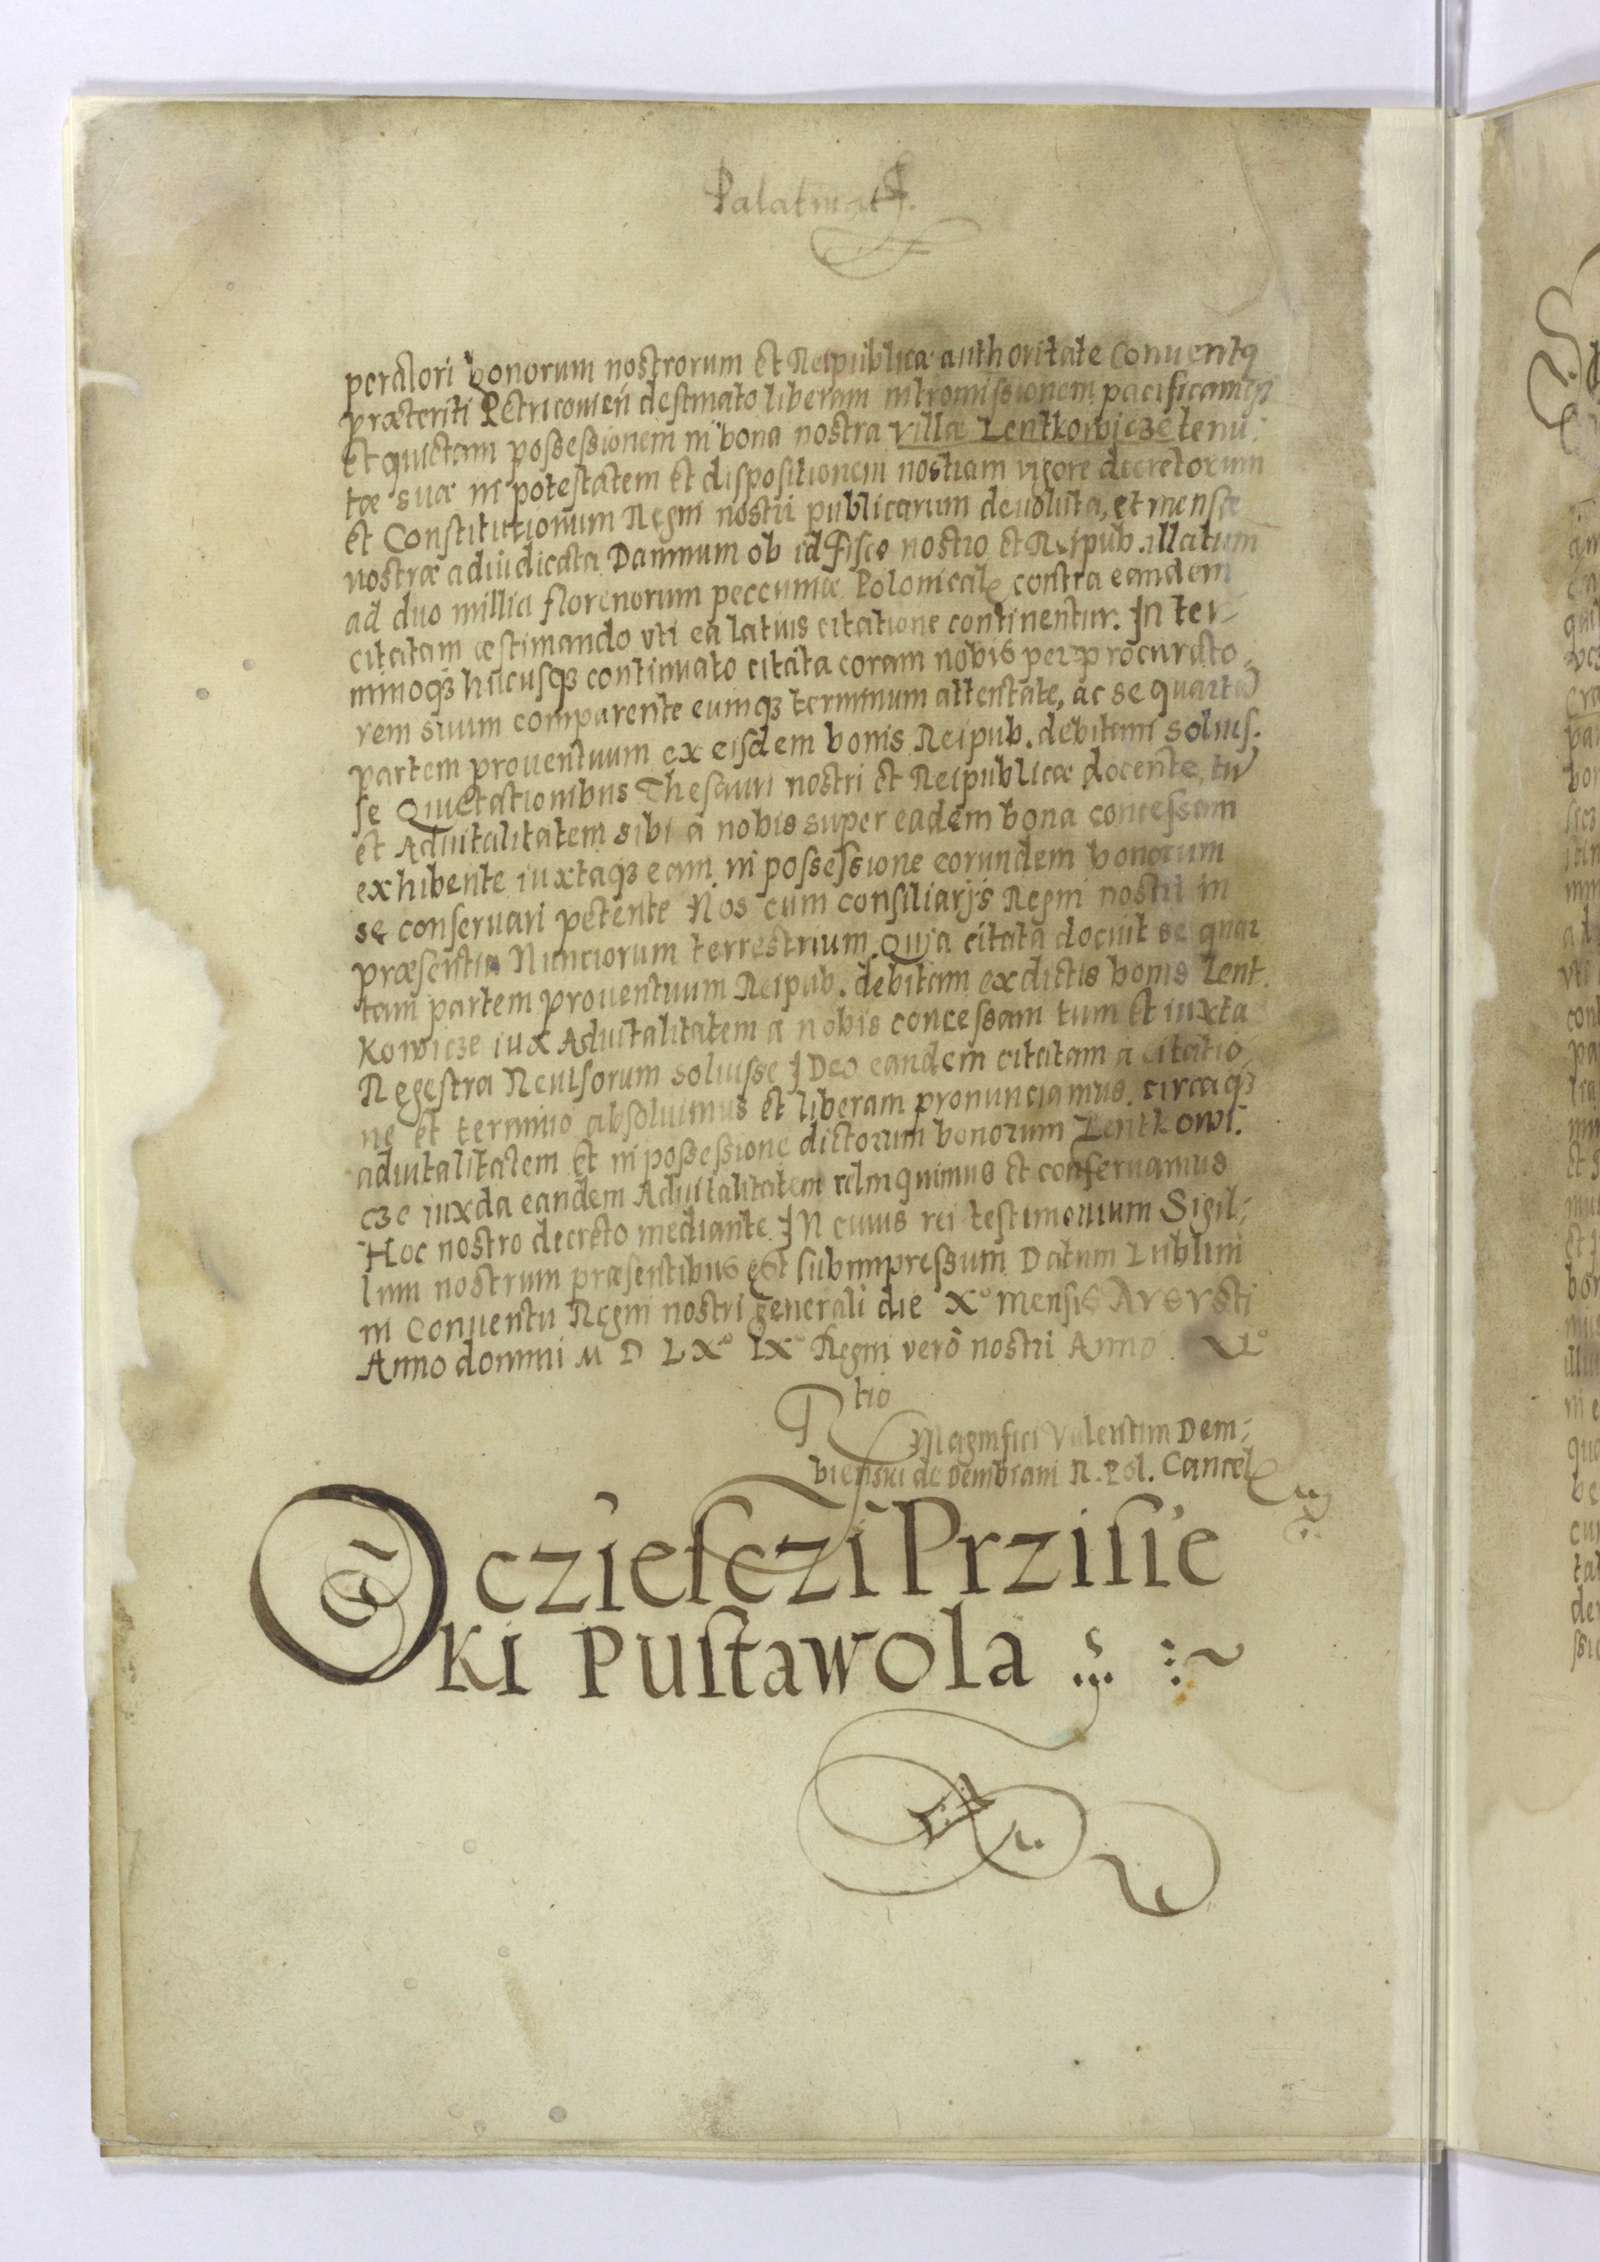 Palatinat
peratori bonorum nostrorum et Reipublicæ authoritate Conventq
præteriti Petricovien destinato liberam intromissionem pacificamq3
et quietam possessionem in bona nostra villæ Lentkowicze tenu:
tæ suæ in potestatem et dispositionem nostram vigore decretorum
et Constitutionum Regni nostri publicarum devoluta, et mensæ
nostræ adiudicata Damnum ob id Fisco nostro et Reipub. illatum
ad duo millia florenorum peccuniæ Polonical contra eandem
citatam æstimando vti ea latius citatione continentur. In ter:
minoq3 hucusq3 continuato citata coram nobis per procurato:
rem suum comparente eumq3 terminum attentate, ac se quartā
partem proventuum ex eisdem bonis Reipub. debitam soluis:
se Quietationibus Thesauri nostri et Reipublicæ docente, tū
et Advitalitatem sibi a nobis super eadem bona concessam
exhibente iuxtaq3 eam in possessione eorundem bonorum
se conservari petente Nos cum consiliarijs Regni nostri in
præsentia Nunciorum terrestrium Quia citata docuit se quar
tam partem proventuum Reipub. debitam ex dictis bonis Lent:
kowicze iux Advitalitatem a nobis concessam tum et iuxta
Regestra Revisorum soluisse IDeo eandem citatam a citatio
ne et termino absoluimus et liberam pronunciamus. circaq3
advitalitatem et in possessione dictorum bonorum Lentkowi:
cze iuxda eandem Advitalitatem relinquimus et conservamus
Hoc nostro decreto mediante IN cuius rei testimonium Sigil:
lum nostrum præsentibus est subimpressum Datum Lublini
in Conventu Regni nostri generali die Xº mensis Avgvsti
Anno domini M D LXº IXº Regni verò nostri Anno XLº
Rtio
Magnifici Valentini Dem:
bienski de Dembiani R. Pol. Cancel
Oczieſczi Prziſie
ki Puſtawola